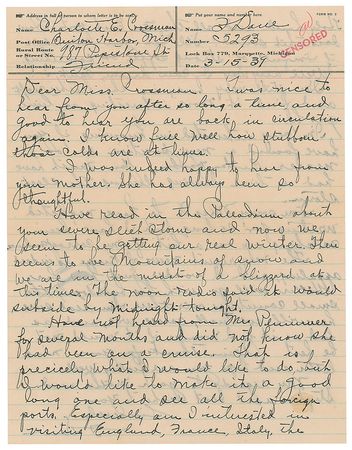 Address in full of person to whom letter is to be sent
Name Charlotte E. Crossman
Post Office Benton Harbor, Mich
Rural Route
or Street No. 987 Pipestone St
Relationship Friend
Put your name and number here FORM NO.
Name F. Burke
Number 5293
Lock Box 779, Marquette, Michigan
Date 3-15-37
CENSORED
Dear Miss. Crossman. Twas nice to
hear from you after so long a time and
good to hear you are back in circulation
again. I know full well how stubborn
those colds are at times.
I was indeed happy to hear from
your mother. She has always been so
thoughtful.
Have read in the Palladium about
your severe sleet storm and now we
seem to be getting our real winter. There
seems to be mountains of snow and
we are in the midst of a blizzard at
this time. The noon radio said it would
subside by midnight tonight.
Have not heard from Mrs
for several months and did not know she
had been on a cruise. That is
precicely what I would like to do, but
I would like to make it a good
long one and see all the foreign
ports. Especially am I interested in
visiting England, France, Italy, the